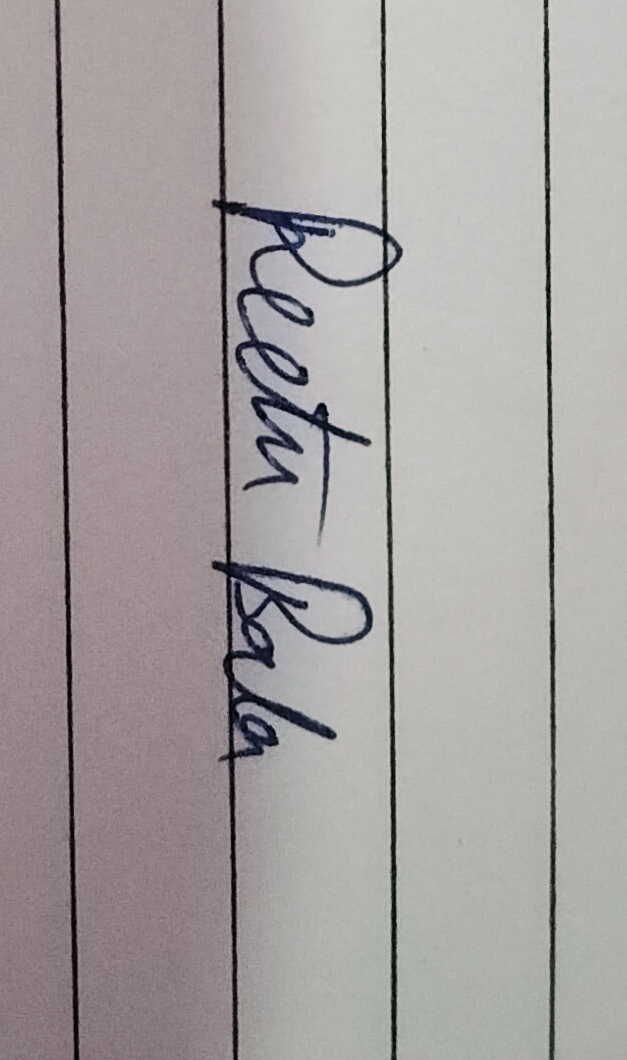 Reetu Bala